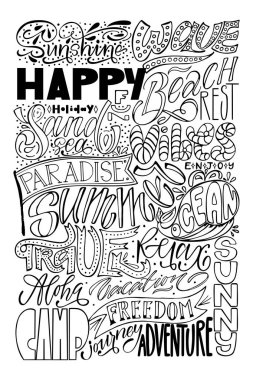 Sunshine
WAVE
HAPPY
Beach
Holiday
REST
Sand
sea
Vibes
ENJOY
PARADISE
Summer
OCEAN
Travel
Relax
SUNNY
Aloha
Vacation
FREEDOM
CAMP
journey
ADVENTURE